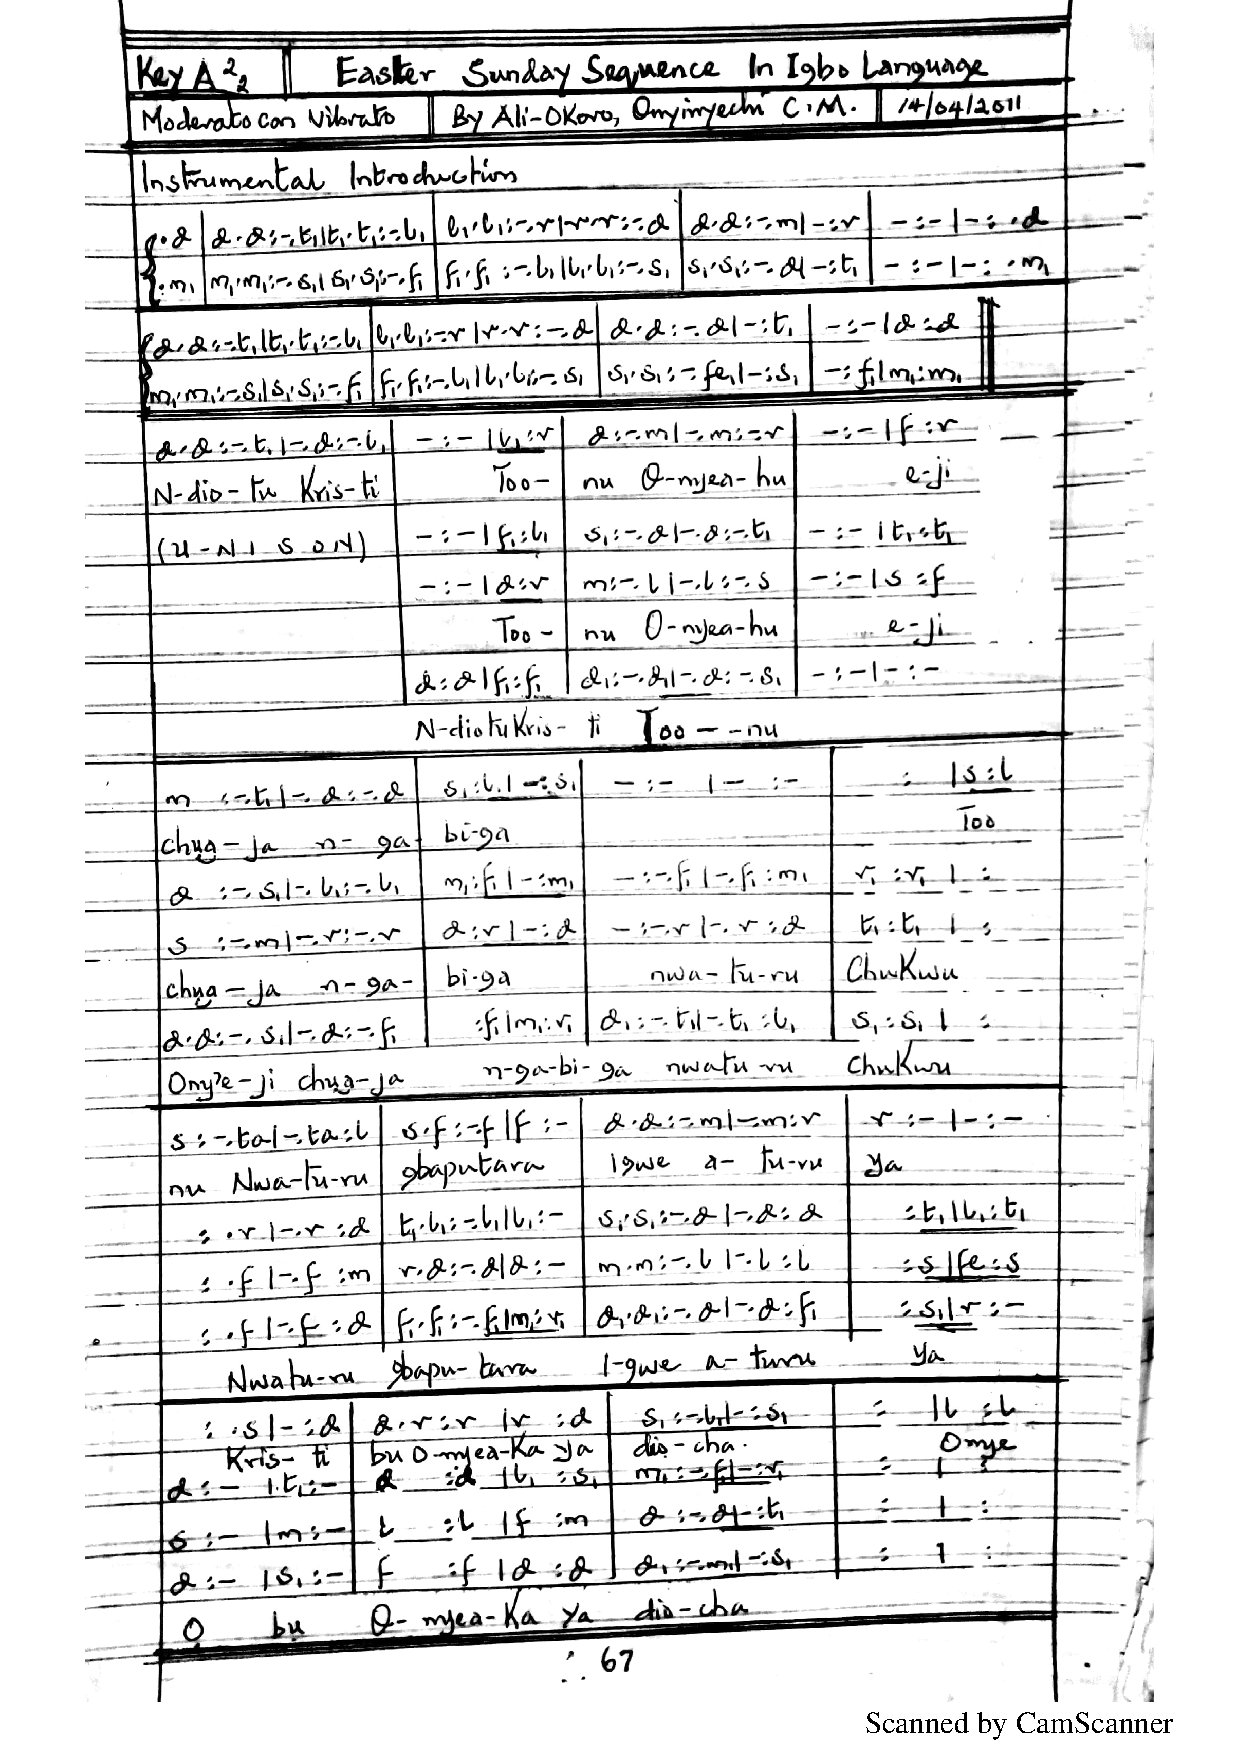 Key A 2/2 Easter Sunday Sequence In Igbo Language
Moderato con Vibrato By Ali-Okoro, Onyinyechi C.M. 14/04/2011
Instrumental Introduction
{ :.d | d.d:-.t₁|t₁.t₁:-.l₁ | l₁.l₁:-.r|r.r:-.d | d.d:-.m|-:r | -:-|-:.d
{ :.m₁ | m₁.m₁:-.s₁|s₁.s₁:-.f₁ | f₁.f₁:-.l₁|l₁.l₁:-.s₁ | s₁.s₁:-.d|-:t₁ | -:-|-:.m₁
{ d.d:-.t₁|t₁.t₁:-.l₁ | l₁.l₁:-.r|r.r:-.d | d.d:-.d|-:t₁ | -:-|d:d
{ m₁.m₁:-.s₁|s₁.s₁:-.f₁ | f₁.f₁:-.l₁|l₁.l₁:-.s₁ | s₁.s₁:-.fe₁|-:s₁ | -:f₁|m₁:m₁
d.d:-.t₁|-.d:-.l₁ | -:-|l₁:r | d:-.m|-.m:-.r | -:-|f:r
N-dio-tu Kris-ti Too- nu O-nyea-hu e-ji
(U-NISON) -:-|f₁:l₁ | s₁:-.d|-.d:-.t₁ | -:-|t₁:t₁
-:-|d:r | m:-.l|-.l:-.s | -:-|s:f
Too- nu O-nyea-hu e-ji
d:d|f₁:f₁ | d₁:-.d₁|-.d:-.s₁ | -:-|-:-
N-diotu Kris-ti Too---nu
m:-.t₁|-.d:-.d | s₁:l₁|-:s₁ | -:-|-:- | : |s:l
chụa-ja n-ga- bi-ga Too
d:-.s₁|-.l₁:-.l₁ | m₁:f₁|-:m₁ | -:-.f₁|-.f₁:m₁ | r₁:r₁| :
s:-.m|-.r:-.r | d:r|-:d | -:-.r|-.r:d | t₁:t₁| :
chụa-ja n-ga- bi-ga nwa-tu-ru Chukwu
d.d:-.s₁|-.d:-.f₁ | :f₁|m₁:r₁ | d₁:-.t₁|-.t₁:l₁ | s₁:s₁| :
Ony'e-ji chụa-ja n-ga-bi-ga nwatu-ru Chukwu
s:-.ta|-.ta:l | s.f:-.f|f:- | d.d:-.m|-.m:r | r:-|-:-
nu Nwa-tu-ru gbaputara igwe a-tu-ru ya
:.r|-.r:d | t₁.l₁:-.l₁|l₁:- | s₁.s₁:-.d|-.d:d | :t₁|l₁:t₁
:.f|-.f:m | r.d:-.d|d:- | m.m:-.l|-.l:l | :s|fe:s
:.f|-.f:d | f₁.f₁:-.f₁|m₁:r₁ | d₁.d₁:-.d|-.d:f₁ | :s₁|r:-
Nwatu-ru gbapu-tara I-gwe a-turu ya
:.s|-:d | d.r:r|r:d | s₁:-.l₁|-:s₁ | : |l:l
Kris-ti bu O-nyea-Ka ya dio-cha. Onye
d:-|t₁:- | d:d|l₁:s₁ | m₁:-.f₁|-:r₁ | : | :
s:-|m:- | l:l|f:m | d:-.d|-:t₁ | : | :
d:-|s₁:- | f:f|d:d | d₁:-.m₁|-:s₁ | : | :
O bu O-nyea-Ka Ya dio-cha
67
Scanned by CamScanner